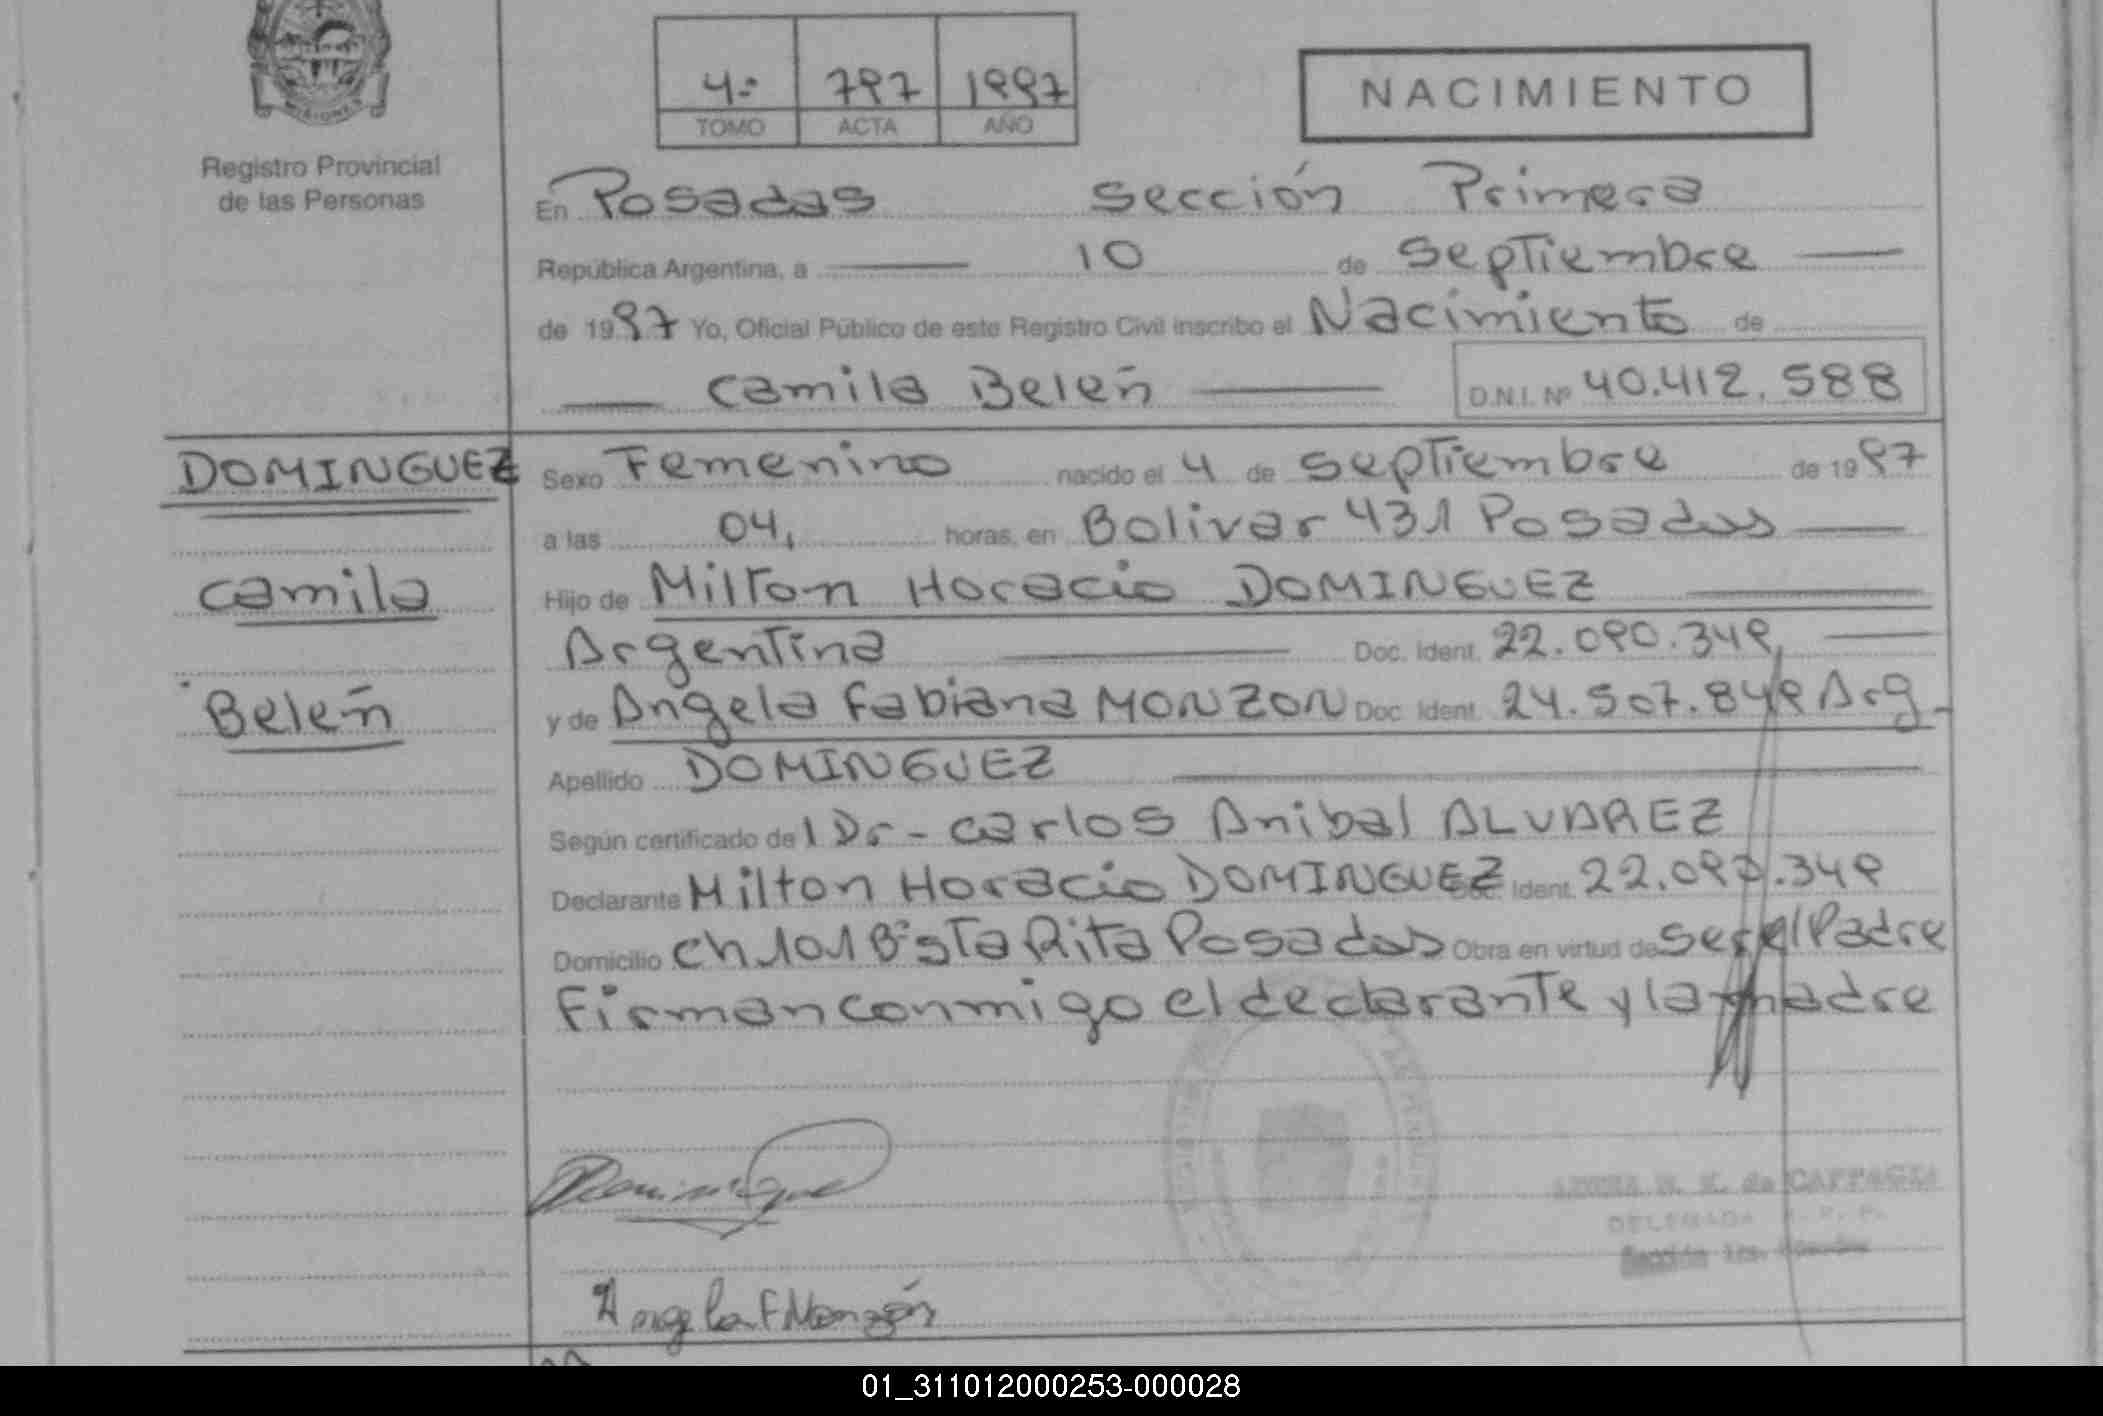 MISIONES
Registro Provincial
de las Personas
4º 797 1997
TOMO ACTA AÑO
NACIMIENTO
En Posadas Sección Primera
República Argentina, a 10 de Septiembre
de 1997 Yo, Oficial Público de este Registro Civil inscribo el Nacimiento de
Camila Belén D.N.I. Nº 40.412.588
DOMINGUEZ
Camila
Belén
Sexo Femenino nacido el 4 de Septiembre de 1997
a las 04, horas, en Bolivar 431 Posadas
Hijo de Milton Horacio DOMINGUEZ
Argentina Doc. Ident. 22.090.349
y de Angela Fabiana MONZON Doc. Ident. 24.507.849 Arg.
Apellido DOMINGUEZ
Según certificado de l Dr - Carlos Anibal ALVAREZ
Declarante Milton Horacio DOMINGUEZ Doc. Ident. 22.090.349
Domicilio Ch 101 Bº Sta Rita Posadas Obra en virtud de ser el Padre
Firman conmigo el declarante y la madre
Angela F Monzón
de CAFFAGIA
DELEGADA R. P. P.
Sección 1ra. Posadas
01_311012000253-000028